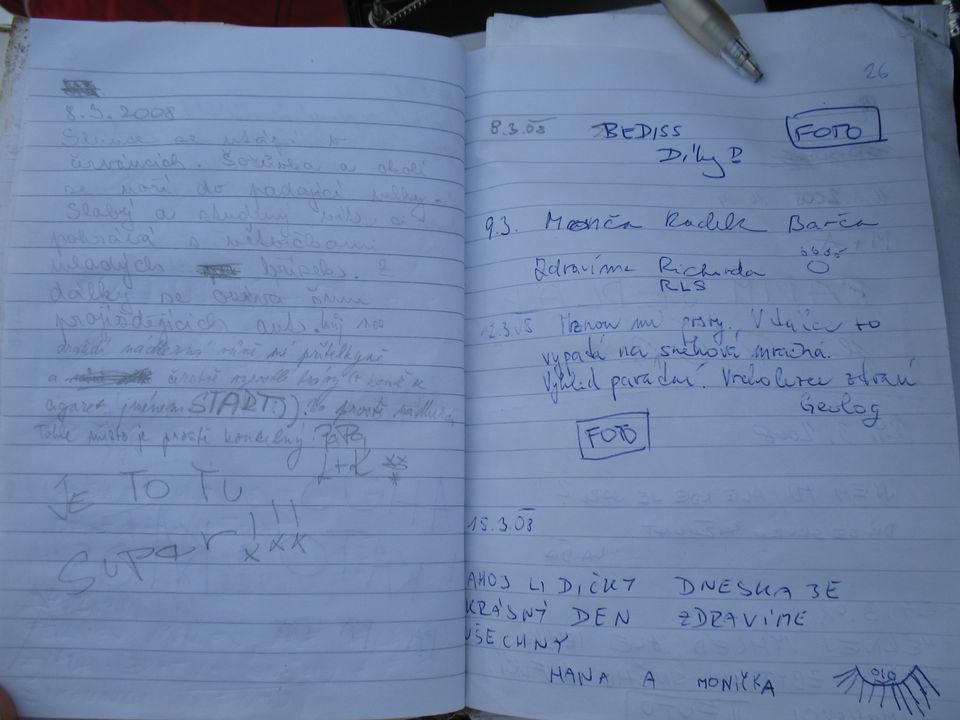 8.3.2008
Slunce se utápí v
červáncích. a okolí
se noří do padající mlhy.
Slabý a studený vítr si
pohrává s větvičkami
mladých břízek. Z
dálky se ozývá šum
projíždějících aut.
nádherná vůně mé přítelkyně
a
cigaret jménem START:)). Je prostě nádhera,
Tohle místo je prostě kouzelný.
L+K
JE TO TU
SUPER!!!
26
8.3.08 BEDISS FOTO
Díky
9.3. Monča Radek Barča
Zdravíme Richarda
RLS
12.3.08 Mrznou mi prsty. V dálce to
vypadá na sněhová mračna.
Výhled parádní. Vrcholovce zdraví
Geolog
FOTO
15.3.08
AHOJ LIDIČKY DNESKA JE
KRÁSNÝ DEN ZDRAVÍME
VŠECHNY
HANA A MONIČKA